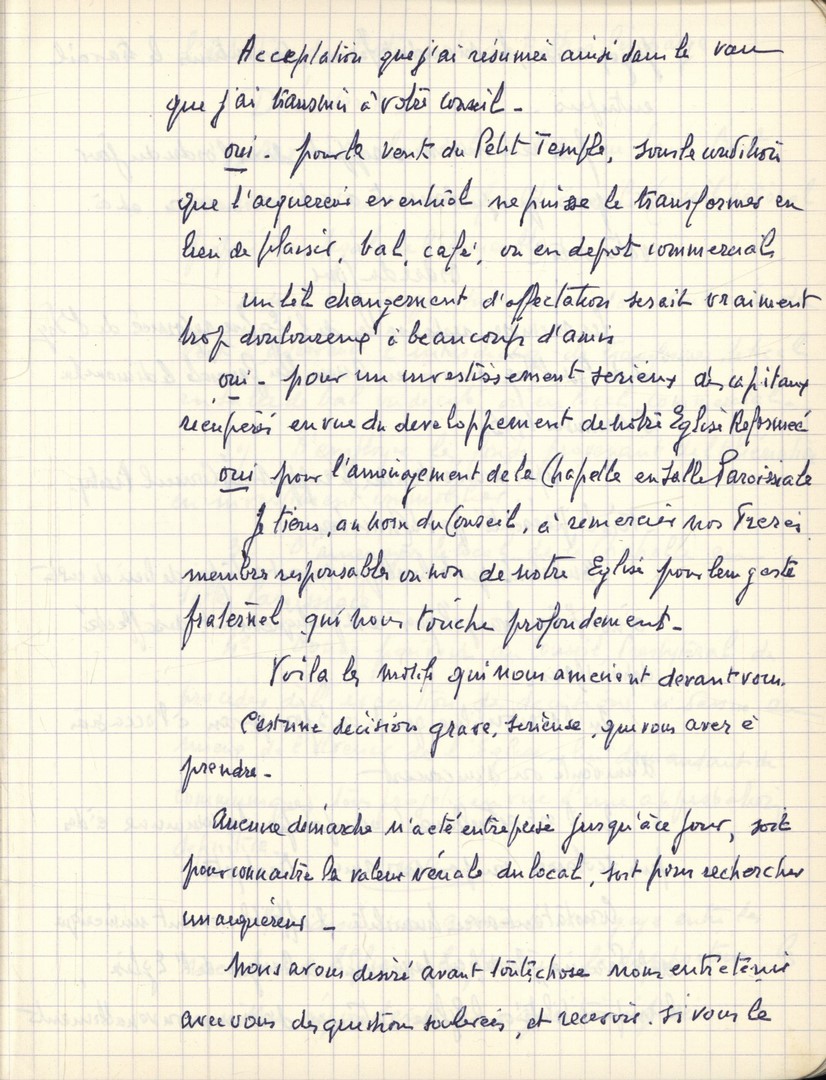 Acceptation que j'ai résumée ainsi dans le vœu
que j'ai transmis à votre conseil -
oui - pour la vente du Petit Temple, sous la condition
que l'acquereur eventuel ne puisse le transformer en
lieu de plaisir, bal, café, ou en depot commercial
un tel changement d'affectation serait vraiment
trop douloureux à beaucoup d'amis
oui - pour un investissement serieux des capitaux
récupérés en vue du developpement de notre Eglise Reformée
oui pour l'aménagement de la Chapelle en salle Paroissiale
Je tiens, au nom du Conseil, à remercier nos Freres
membres responsables ou non de notre Eglise pour leur geste
fraternel qui nous touche profondement -
Voila les motifs qui nous amenent devant vous.
C'est une décision grave, serieuse, que vous avez à
prendre -
Aucune démarche n'a été entreprise jusqu'à ce jour, soit
pour connaitre la valeur vénale du local, soit pour rechercher
un acquéreur -
Nous avons desiré avant toute chose nous entretenir
avec vous des questions soulevées, et recevoir. si vous le